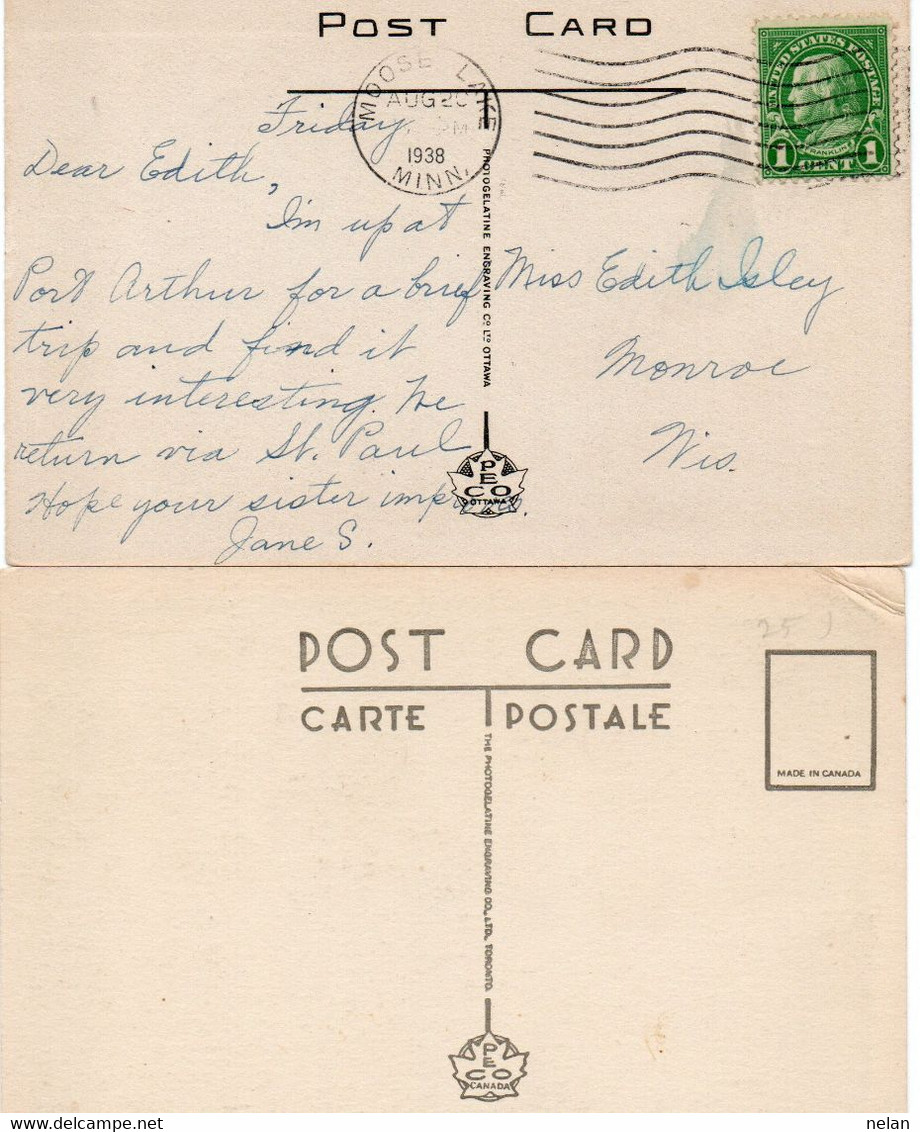 POST CARD
MOOSE LAKE
AUG 20
M
1938
MINN.
UNITED STATES POSTAGE
FRANKLIN
1 CENT 1
Friday,
Dear Edith,
I'm up at
Port Arthur for a brief
trip and find it
very interesting. We
return via St. Paul
Hope your sister improves.
Jane S.
PHOTOGELATINE ENGRAVING CO LTD OTTAWA
PECO
OTTAWA
Miss Edith Isley
Monroe
Wis.
25
POST CARD
CARTE POSTALE
MADE IN CANADA
THE PHOTOGELATINE ENGRAVING CO., LTD. TORONTO
PECO
CANADA
nelan